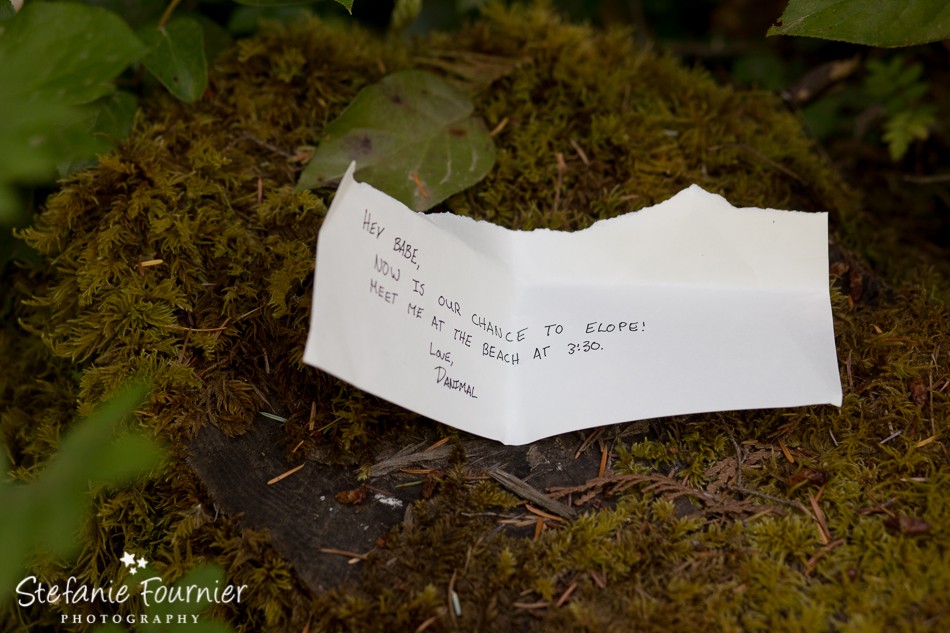 HEY BABE,
NOW IS OUR CHANCE TO ELOPE!
MEET ME AT THE BEACH AT 3:30.
LOVE,
DANIMAL
Stefanie Fournier
PHOTOGRAPHY